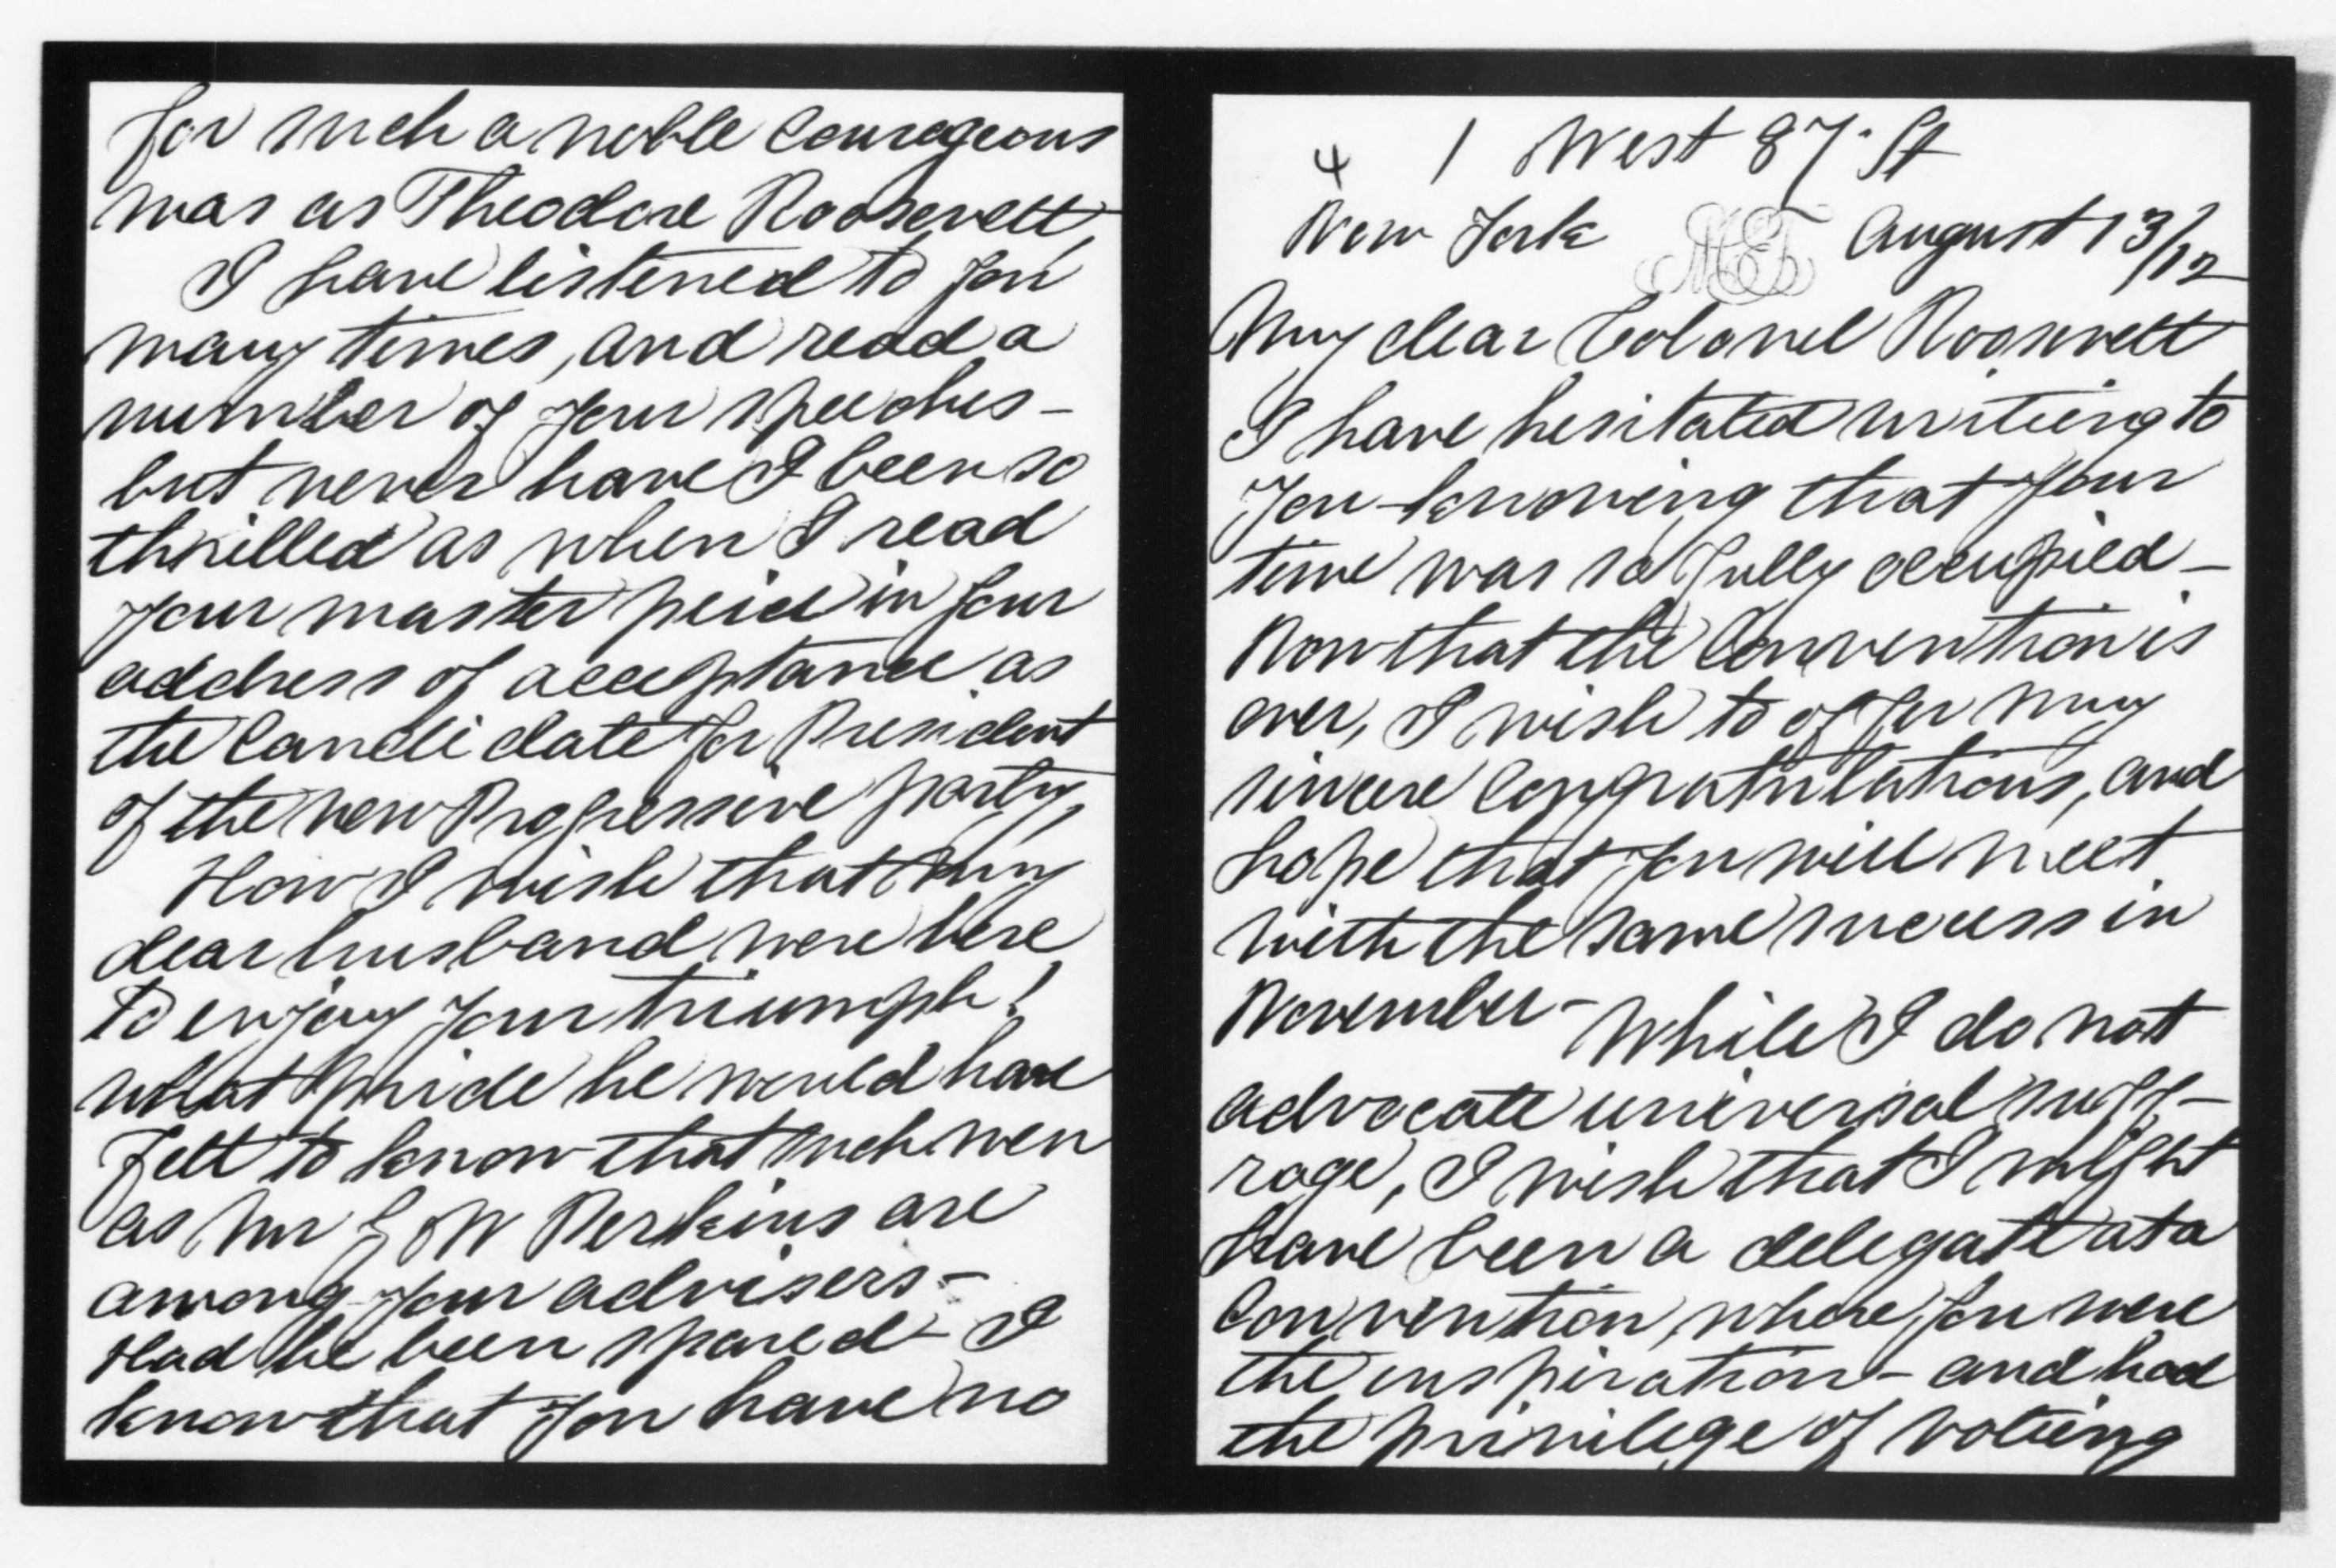 4 1 West 87. St
New York August 13/12
My dear Colonel Roosevelt
I have hesitated writing to
you knowing that your
time was so fully occupied –
Now that the Convention is
over, I wish to offer my
sincere Congratulations, and
hope that you will meet
with the same success in
November – While I do not
advocate universal suff–
rage, I wish that I might
have been a delegate at a
Convention, where you were
the inspiration – and had
the privilege of voting
for such a noble courageous
was as Theodore Roosevelt,
I have listened to you
many times, and read a
number of your speeches –
but never have I been so
thrilled as when I read
your master peice in your
address of acceptance as
the Candidate for President
of the new Progressive party,
How I wish that my
dear husband were here
to enjoy your triumph!
what pride he would have
felt to know that such men
as Mr G W Perkins are
among your advisers –
Had he been spared – I
know that you have no